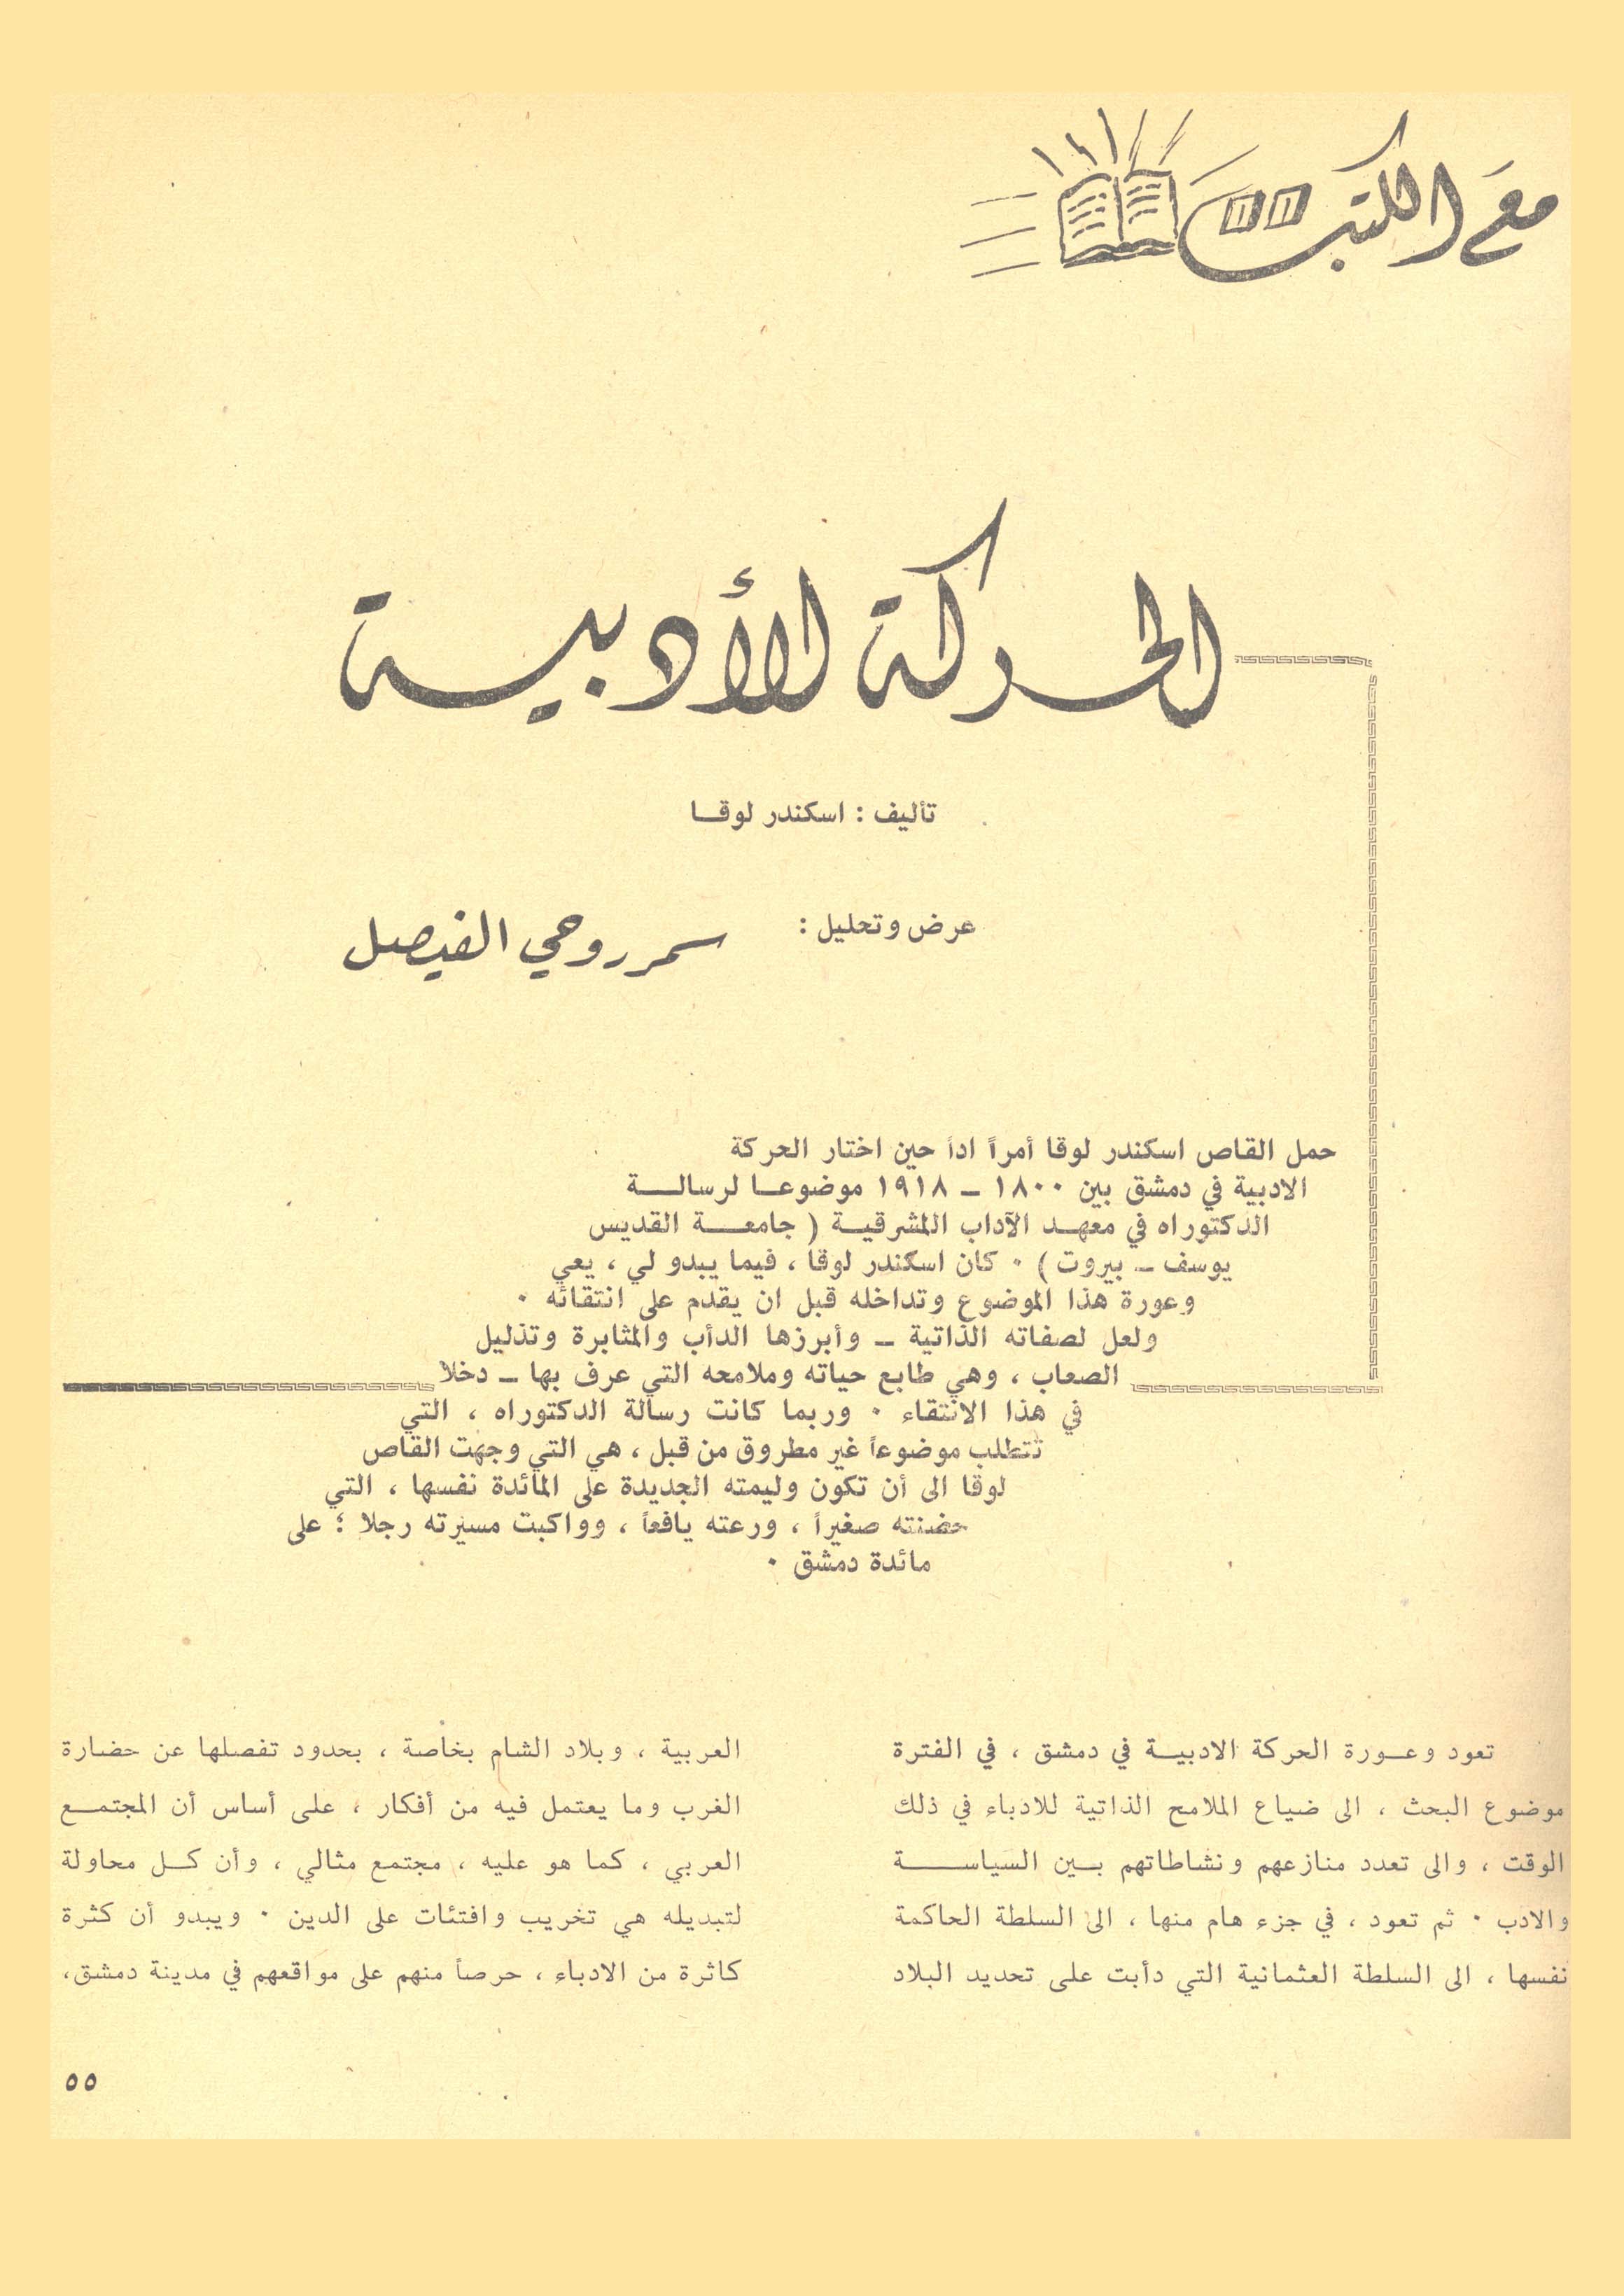 مع الكتب
الحركة الأدبية
تأليف : اسكندر لوقا
عرض وتحليل :
سمر روحي الفيصل
حمل القاص اسكندر لوقا أمراً اداً حين اختار الحركة
الادبية في دمشق بين ١٨٠٠ – ١٩١٨ موضوعا لرسالة
الدكتوراه في معهد الآداب المشرقية ( جامعة القديس
يوسف – بيروت ) ٠ كان اسكندر لوقا ، فيما يبدو لي ، يعي
وعورة هذا الموضوع وتداخله قبل ان يقدم على انتقائه ٠
ولعل لصفاته الذاتية – وأبرزها الدأب والمثابرة وتذليل
الصعاب ، وهي طابع حياته وملامحه التي عرف بها – دخلا
في هذا الانتقاء ٠ وربما كانت رسالة الدكتوراه ، التي
تتطلب موضوعاً غير مطروق من قبل ، هي التي وجهت القاص
لوقا الى أن تكون وليمته الجديدة على المائدة نفسها ، التي
حضنته صغيراً ، ورعته يافعاً ، وواكبت مسيرته رجلا ؛ على
مائدة دمشق ٠
تعود وعورة الحركة الادبية في دمشق ، في الفترة
موضوع البحث ، الى ضياع الملامح الذاتية للادباء في ذلك
الوقت ، والى تعدد منازعهم ونشاطاتهم بين السياسة
والادب ٠ ثم تعود ، في جزء هام منها ، الى السلطة الحاكمة
نفسها ، الى السلطة العثمانية التي دأبت على تحديد البلاد
العربية ، وبلاد الشام بخاصة ، بحدود تفصلها عن حضارة
الغرب وما يعتمل فيه من أفكار ، على أساس أن المجتمع
العربي ، كما هو عليه ، مجتمع مثالي ، وأن كل محاولة
لتبديله هي تخريب وافتئات على الدين ٠ ويبدو أن كثرة
كاثرة من الادباء ، حرصاً منهم على مواقعهم في مدينة دمشق،
٥٥